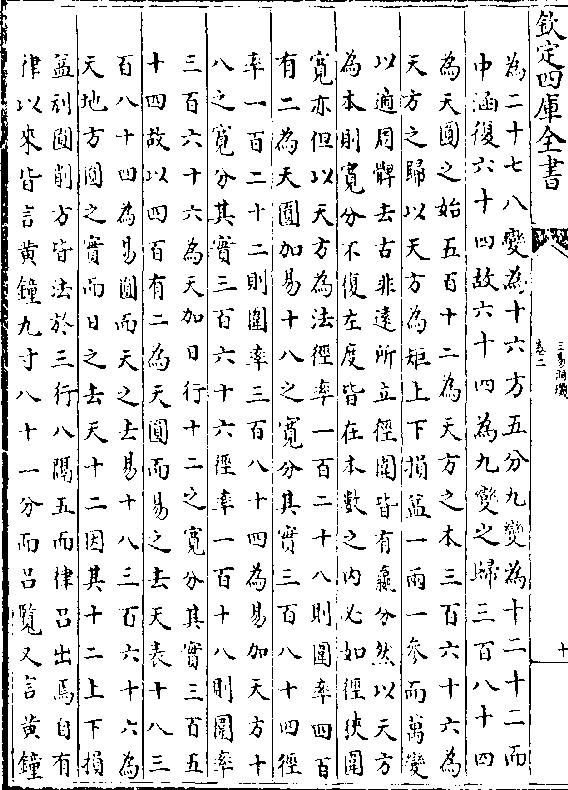 欽定四庫全書
三易洞璣
卷二
十
為二十七八變為十六方五分九變為十二十二而
中涵復六十四故六十四為九變之歸三百八十四
為天圓之始五百十二為天方之本三百六十六為
天方之歸以天方為矩上下損益一兩一參而萬變
以適周髀去古非遠所立徑圍皆有龜分然以天方
為本則寬分不復左度皆在本數之內必如徑狹圍
寬亦但以天方為法徑率一百二十八則圍率四百
有二為天圓加易十八之寬分其實三百八十四徑
率一百二十二則圍率三百八十四為易加天方十
八之寬分其實三百六十六徑率一百十八則圍率
三百六十六為天加日行十二之寬分其實三百五
十四故以四百有二為天圓而易之去天表十八三
百八十四為易圓而天之去易十八三百六十六為
天地方圓之實而日之去天十二因其十二上下損
益刓圓削方皆法於三行八隅五而律呂出焉自有
律以來皆言黃鐘九寸八十一分而呂覽又言黃鐘